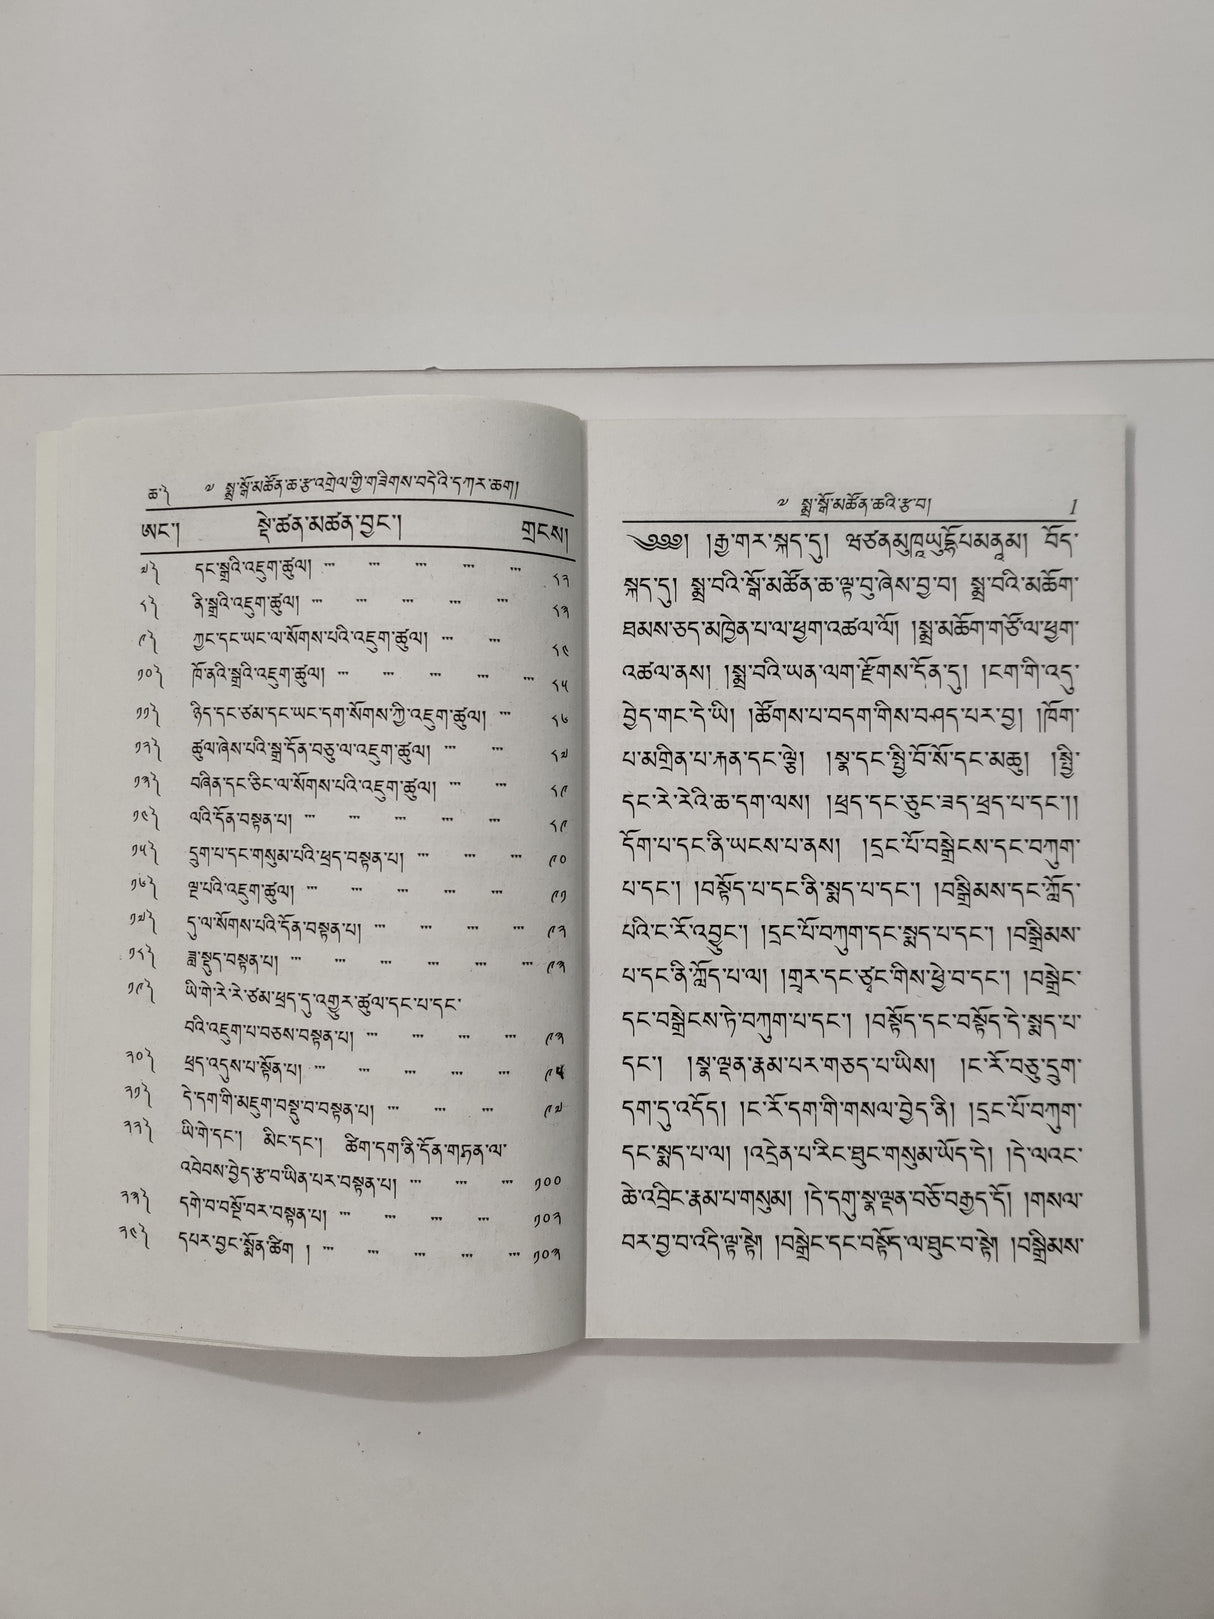 ཆ༽ ༧ སྨྲ་སྒོ་མཚོན་ཆ་རྩ་འགྲེལ་གྱི་གཟིགས་བདེའི་དཀར་ཆག།
ཨང་། སྡེ་ཚན་མཚན་བྱང་། གྲངས།
༧༽ དང་སྒྲའི་འཇུག་ཚུལ། ... ... ... ... ... ༨༢
༨༽ ནི་སྒྲའི་འཇུག་ཚུལ། ... ... ... ... ... ༨༣
༩༽ ཀྱང་དང་ཡང་ལ་སོགས་པའི་འཇུག་ཚུལ། ... ... ༨༤
༡༠༽ ཁོ་ནའི་སྒྲའི་འཇུག་ཚུལ། ... ... ... ... ... ༨༥
༡༡༽ ཉིད་དང་ཙམ་དང་ཡང་དག་སོགས་ཀྱི་འཇུག་ཚུལ། ... ༨༦
༡༢༽ ཚུལ་ཞེས་པའི་སྒྲ་དོན་བཅུ་ལ་འཇུག་ཚུལ། ... ... ༨༧
༡༣༽ བཞིན་དང་ཅིང་ལ་སོགས་པའི་འཇུག་ཚུལ། ... ... ༨༩
༡༤༽ ལའི་དོན་བསྟན་པ། ... ... ... ... ... ༨༩
༡༥༽ དྲུག་པ་དང་གསུམ་པའི་ཕྲད་བསྟན་པ། ... ... ... ༩༠
༡༦༽ ལྔ་པའི་འཇུག་ཚུལ། ... ... ... ... ... ༩༡
༡༧༽ དུ་ལ་སོགས་པའི་དོན་བསྟན་པ། ... ... ... ... ༩༢
༡༨༽ ཟླ་སྡུད་བསྟན་པ། ... ... ... ... ... ... ༩༣
༡༩༽ ཡི་གེ་རེ་རེ་ཙམ་ཕྲད་དུ་འགྱུར་ཚུལ་དང་པ་དང་
བའི་འཇུག་པ་བཅས་བསྟན་པ། ... ... ... ... ༩༣
༢༠༽ ཕྲད་འདུས་པ་སྟོན་པ། ... ... ... ... ... ༩༥
༢༡༽ དེ་དག་གི་མཇུག་བསྡུ་བ་བསྟན་པ། ... ... ... ༩༧
༢༢༽ ཡི་གེ་དང་། མིང་དང་། ཚིག་དག་ནི་དོན་གཏན་ལ་
འབེབས་བྱེད་རྩ་བ་ཡིན་པར་བསྟན་པ། ... ... ... ༡༠༠
༢༣༽ དགེ་བ་བསྔོ་བར་བསྟན་པ། ... ... ... ... ༡༠༢
༢༤༽ དཔར་བྱང་སྨོན་ཚིག ། ... ... ... ... ... ༡༠༣
༧ སྨྲ་སྒོ་མཚོན་ཆའི་རྩ་བ། 1
༄༅༅། །རྒྱ་གར་སྐད་དུ། བོད་
སྐད་དུ། སྨྲ་བའི་སྒོ་མཚོན་ཆ་ལྟ་བུ་ཞེས་བྱ་བ། སྨྲ་བའི་མཆོག་
ཐམས་ཅད་མཁྱེན་པ་ལ་ཕྱག་འཚལ་ལོ། །སྨྲ་མཆོག་གཙོ་ལ་ཕྱག་
འཚལ་ནས། །སྨྲ་བའི་ཡན་ལག་རྫོགས་དོན་དུ། །ངག་གི་འདུ་
བྱེད་གང་དེ་ཡི། །ཚོགས་པ་བདག་གིས་བཤད་པར་བྱ། །ཁོག་
པ་མགྲིན་པ་རྐན་དང་ལྕེ། །སྣ་དང་སྤྱི་བོ་སོ་དང་མཆུ། །སྤྱི་
དང་རེ་རེའི་ཆ་དག་ལས། །ཕྲད་དང་ཅུང་ཟད་ཕྲད་པ་དང་།།
དོག་པ་དང་ནི་ཡངས་པ་ནས། །དྲང་པོ་བསྒྲེངས་དང་བཀུག་
པ་དང་། །བསྟོད་པ་དང་ནི་སྨད་པ་དང་། །བསྒྲིམས་དང་ཀློད་
པའི་ང་རོ་འབྱུང་། །དྲང་པོ་བཀུག་དང་སྨད་པ་དང་། །བསྒྲིམས་
པ་དང་ནི་ཀློད་པ་ལ། །གྲྭར་དང་ཙྭང་གིས་ཕྱེ་བ་དང་། །བསྒྲེང་
དང་བསྒྲེངས་ཏེ་བཀུག་པ་དང་། །བསྟོད་དང་བསྟོད་དེ་སྨད་པ་
དང་། །སྣ་ལྡན་རྣམ་པར་གཅད་པ་ཡིས། །ང་རོ་བཅུ་དྲུག་
དག་ཏུ་འདོད། །ང་རོ་དག་གི་གསལ་བྱེད་ནི། །དྲང་པོ་བཀུག་
དང་སྨད་པ་ལ། །འདྲེན་པ་རིང་ཐུང་གསུམ་ཡོད་དེ། །དེ་ལའང་
ཆེ་འབྲིང་རྣམ་པ་གསུམ། །དེ་དགུ་སྣ་ལྡན་བཅོ་བརྒྱད་དོ། །གསལ་
བར་བྱ་བ་འདི་ལྟ་སྟེ། །བསྒྲེང་དང་བསྟོད་ལ་ཐུང་བ་སྟེ། །བསྒྲིམས་